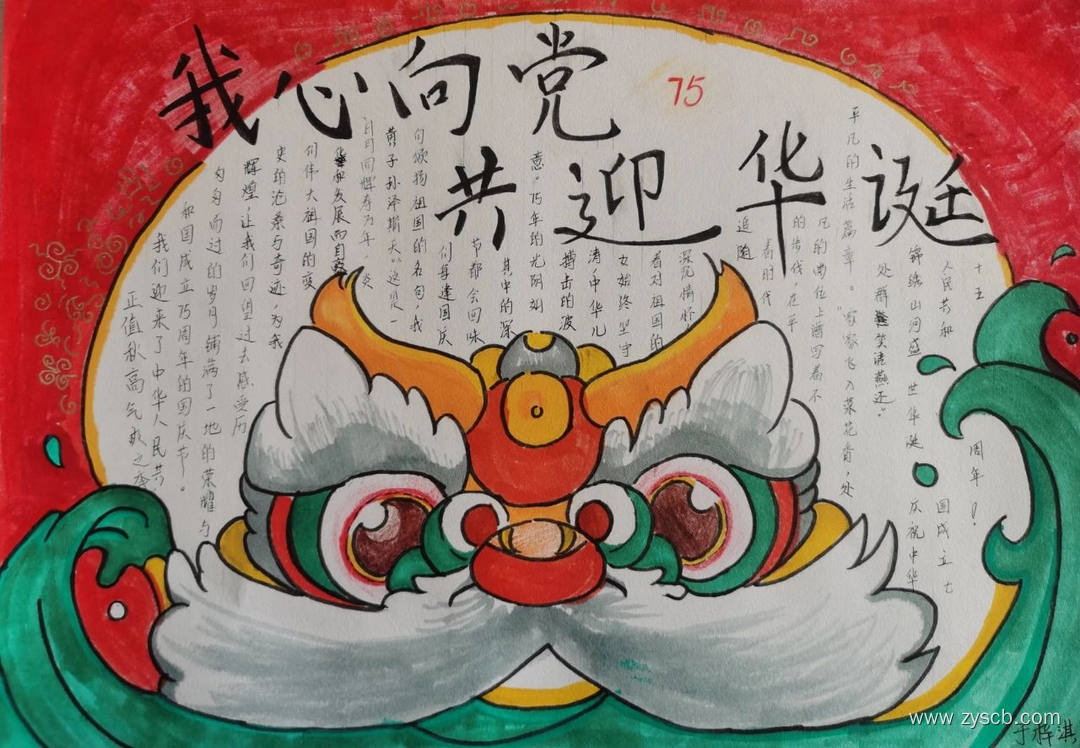 我心向党
75
共迎华诞
正值秋高气爽之季
我们迎来了中华人民共
和国成立75周年的国庆节。
匆匆而过的岁月铺满了一地的荣耀与
辉煌,让我们回望过去感受历
史的沧桑与奇迹,为我
们伟大祖国的变
和发展而自豪
日月同辉春为年,炎
黄子孙泽斯天。"这是一
句颂扬祖国的名句,我
们每逢国庆
节都会回味
其中的深
意。75年的光阴
搏击的波
涛,中华儿
女始终坚守
着对祖国的
深沉情怀
追随
着时代
的步伐,在平
凡的岗位上谱写着不
平凡的生活篇章。
家家飞入菜花香,处
处群 笑语燕还"。
锦绣山河盛世华诞 庆祝中华
人民共和 国成立七
十五 周年!
www.zyscb.com
于桦淇